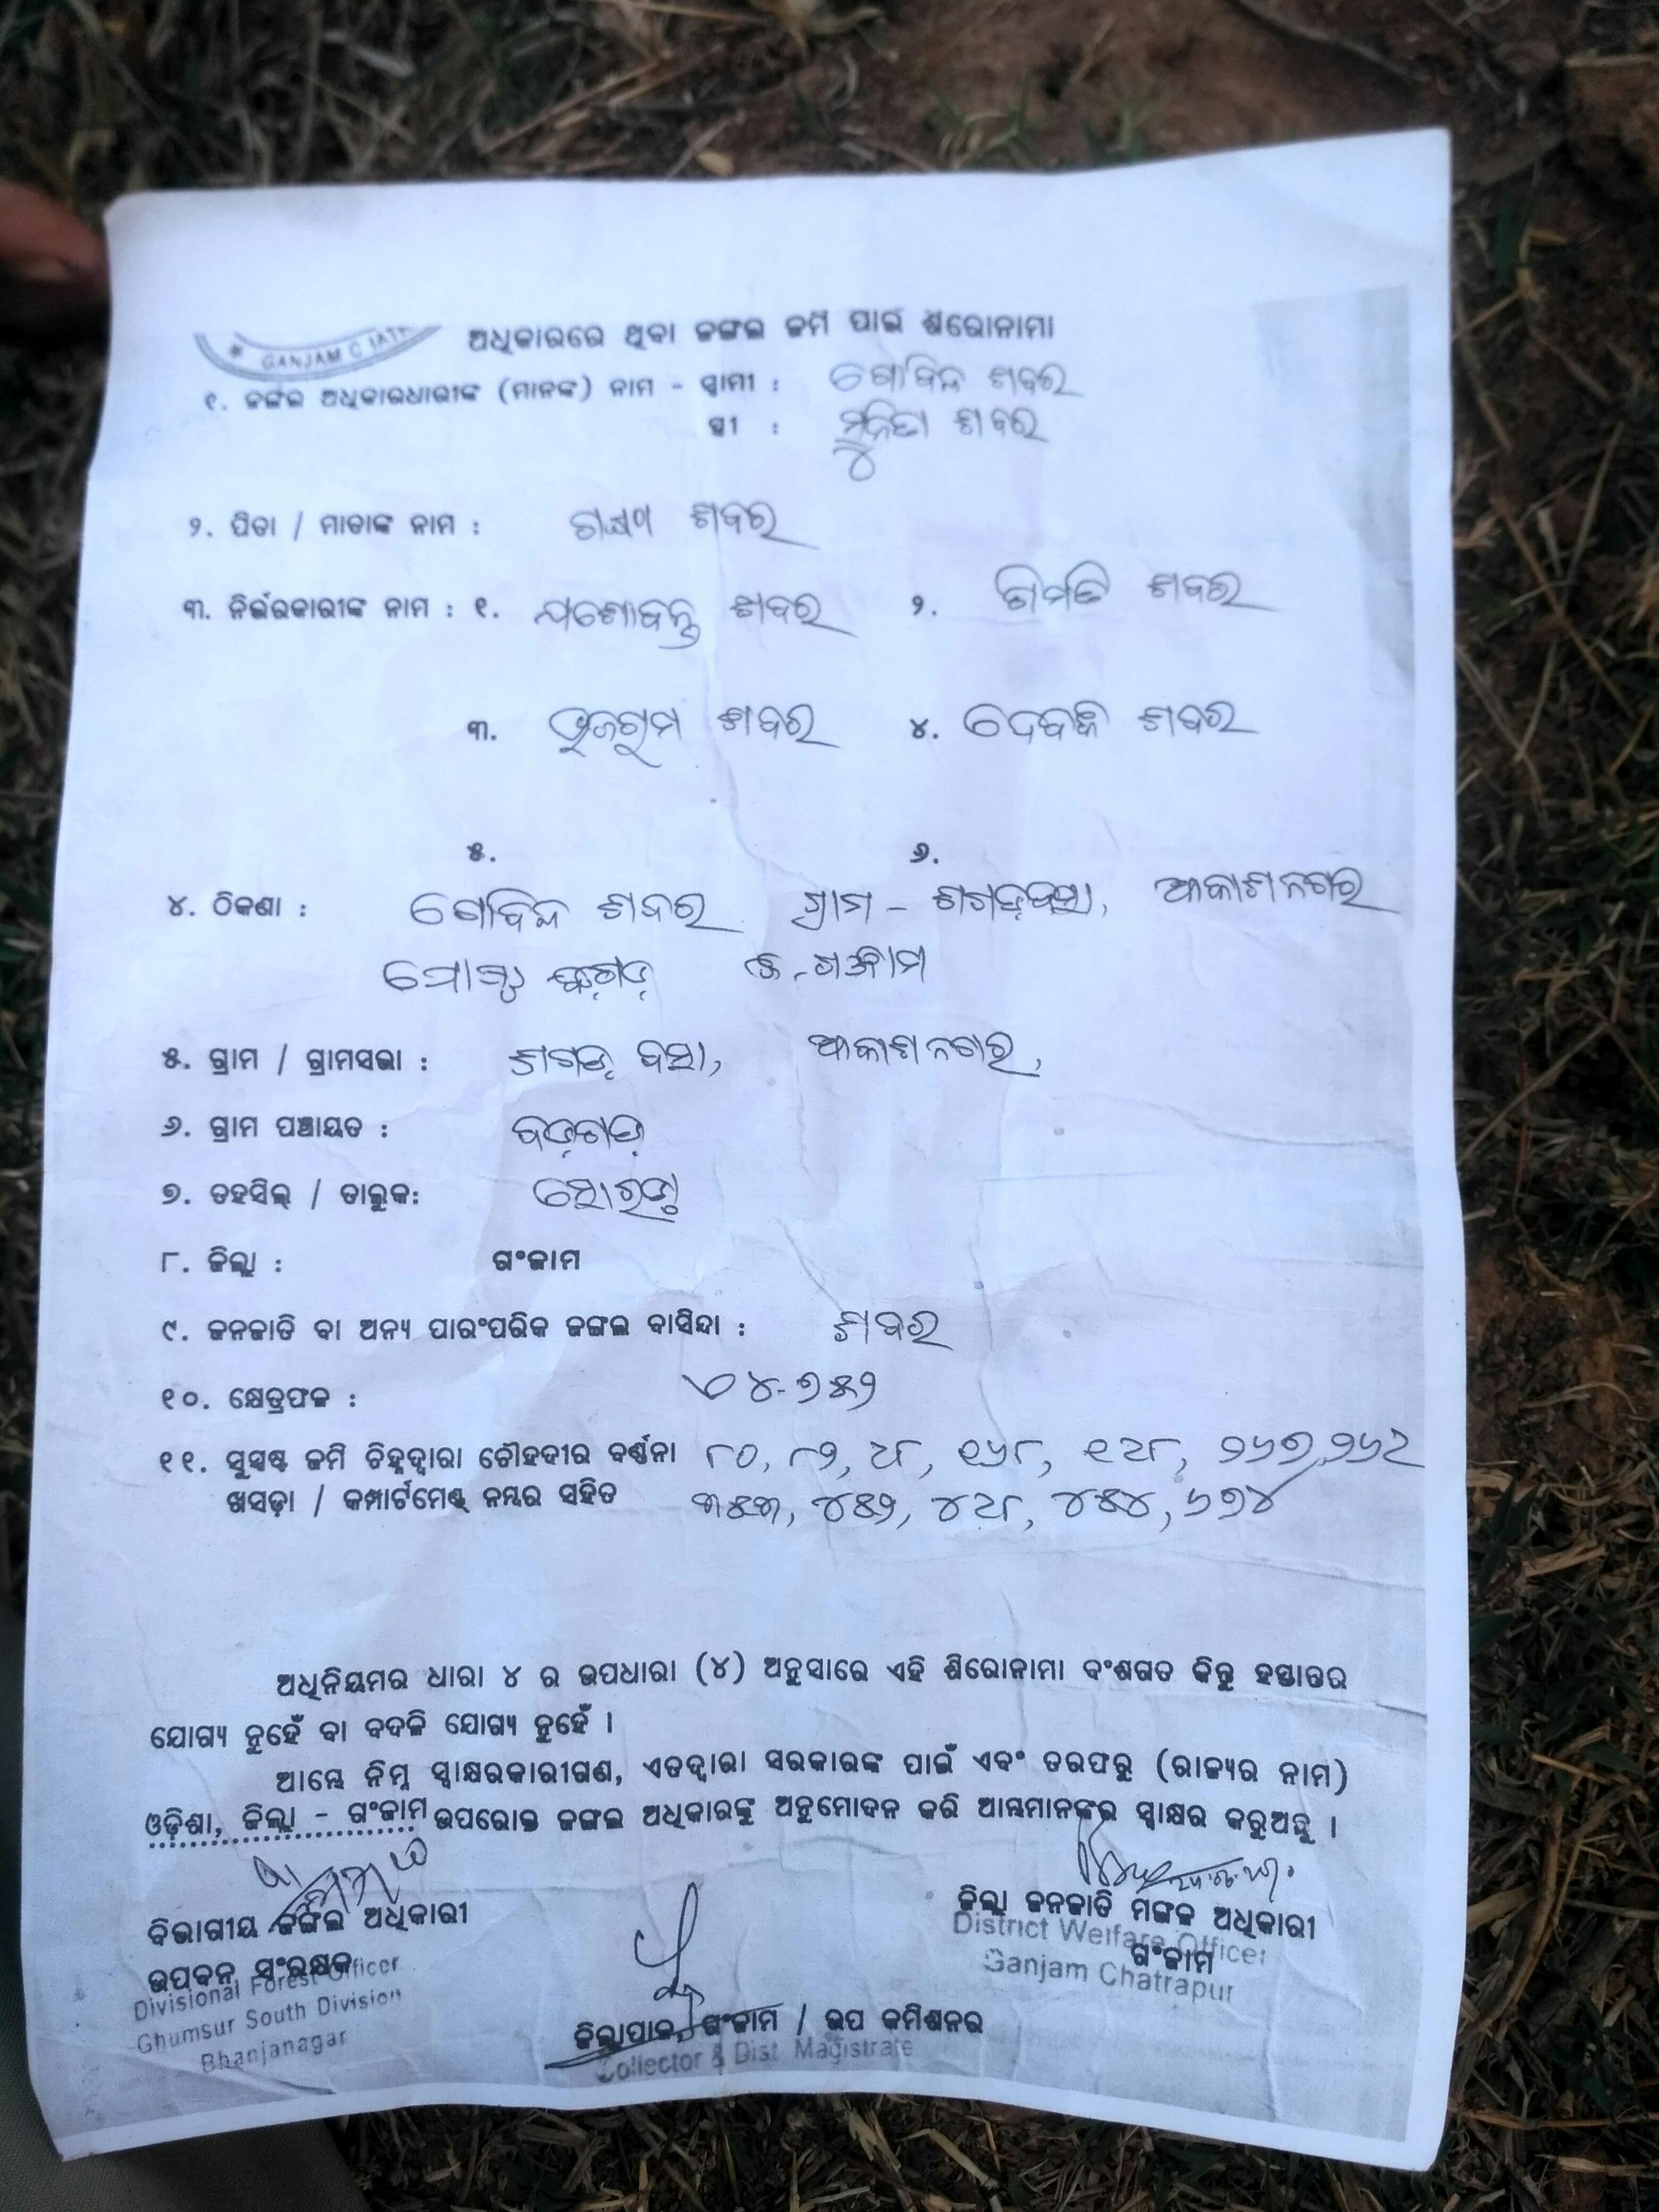 GANJAM C
ଅଧିକାରରେ ଥିବା ଜଙ୍ଗଲ ଜମି ପାଇଁ ଶିରୋନାମା
୧. ଜଙ୍ଗଲ ଅଧିକାରଧାରୀଙ୍କ (ମାନଙ୍କ) ନାମ - ସ୍ୱାମୀ : ଗୋବିନ୍ଦ ଶବର
ସ୍ତ୍ରୀ : ଶବର
୨. ପିତା / ମାତାଙ୍କ ନାମ : ଶବର
୩. ନିର୍ଭରକାରୀଙ୍କ ନାମ : ୧. ଯଶୋବନ୍ତ ଶବର ୨. ଶବର
୩. ଶବର ୪. ଶବର
୫. ୬.
୪. ଠିକଣା : ଗୋବିନ୍ଦ ଶବର ଗ୍ରାମ - ଆକାଶନଗର
ଗଞ୍ଜାମ
୫. ଗ୍ରାମ / ଗ୍ରାମସଭା : ଆକାଶନଗର,
୬. ଗ୍ରାମ ପଞ୍ଚାୟତ : ବଡ଼ଗଡ଼
୭. ତହସିଲ୍ / ତାଲୁକ: ସୋରଡ଼ା
୮. ଜିଲ୍ଲା : ଗଂଜାମ
୯. ଜନଜାତି ବା ଅନ୍ୟ ପାରଂପରିକ ଜଙ୍ଗଲ ବାସିନ୍ଦା : ଶବର
୧୦. କ୍ଷେତ୍ରଫଳ : ୪-୭୫୨
୧୧. ସୁସ୍ପଷ୍ଟ ଜମି ଚିହ୍ନଦ୍ୱାରା ଚୌହଦୀର ବର୍ଣ୍ଣନା ୮୦, ୮୨, ୧୬୮, ୨୬୭,
ଖସଡ଼ା / କମ୍ପାର୍ଟମେଣ୍ଟ୍ ନମ୍ବର ସହିତ ୩୫୩, ୪୫୨, ୪୫୪, ୬୭୪
ଅଧିନିୟମର ଧାରା ୪ ର ଉପଧାରା (୪) ଅନୁସାରେ ଏହି ଶିରୋନାମା ବଂଶଗତ କିନ୍ତୁ ହସ୍ତାନ୍ତର
ଯୋଗ୍ୟ ନୁହେଁ ବା ବଦଳି ଯୋଗ୍ୟ ନୁହେଁ ।
ଆମ୍ଭେ ନିମ୍ନ ସ୍ୱାକ୍ଷରକାରୀଗଣ, ଏତଦ୍ୱାରା ସରକାରଙ୍କ ପାଇଁ ଏବଂ ତରଫରୁ (ରାଜ୍ୟର ନାମ)
ଓଡ଼ିଶା, ଜିଲ୍ଲା - ଗଂଜାମ ଉପରୋକ୍ତ ଜଙ୍ଗଲ ଅଧିକାରଙ୍କୁ ଅନୁମୋଦନ କରି ଆମ୍ଭମାନଙ୍କର ସ୍ୱାକ୍ଷର କରୁଅଛୁ ।
ବିଭାଗୀୟ ଜଙ୍ଗଲ ଅଧିକାରୀ
ଉପବନ ସଂରକ୍ଷକ
Divisional Forest Officer
Ghumsur South Division
Bhanjanagar
ଜିଲ୍ଲାପାଳ, ଗଂଜାମ / ଉପ କମିଶନର
Collector & Dist. Magistrate
ଜିଲ୍ଲା ଜନଜାତି ମଙ୍ଗଳ ଅଧିକାରୀ
District Welfare Officer
ଗଂଜାମ
Ganjam Chatrapur